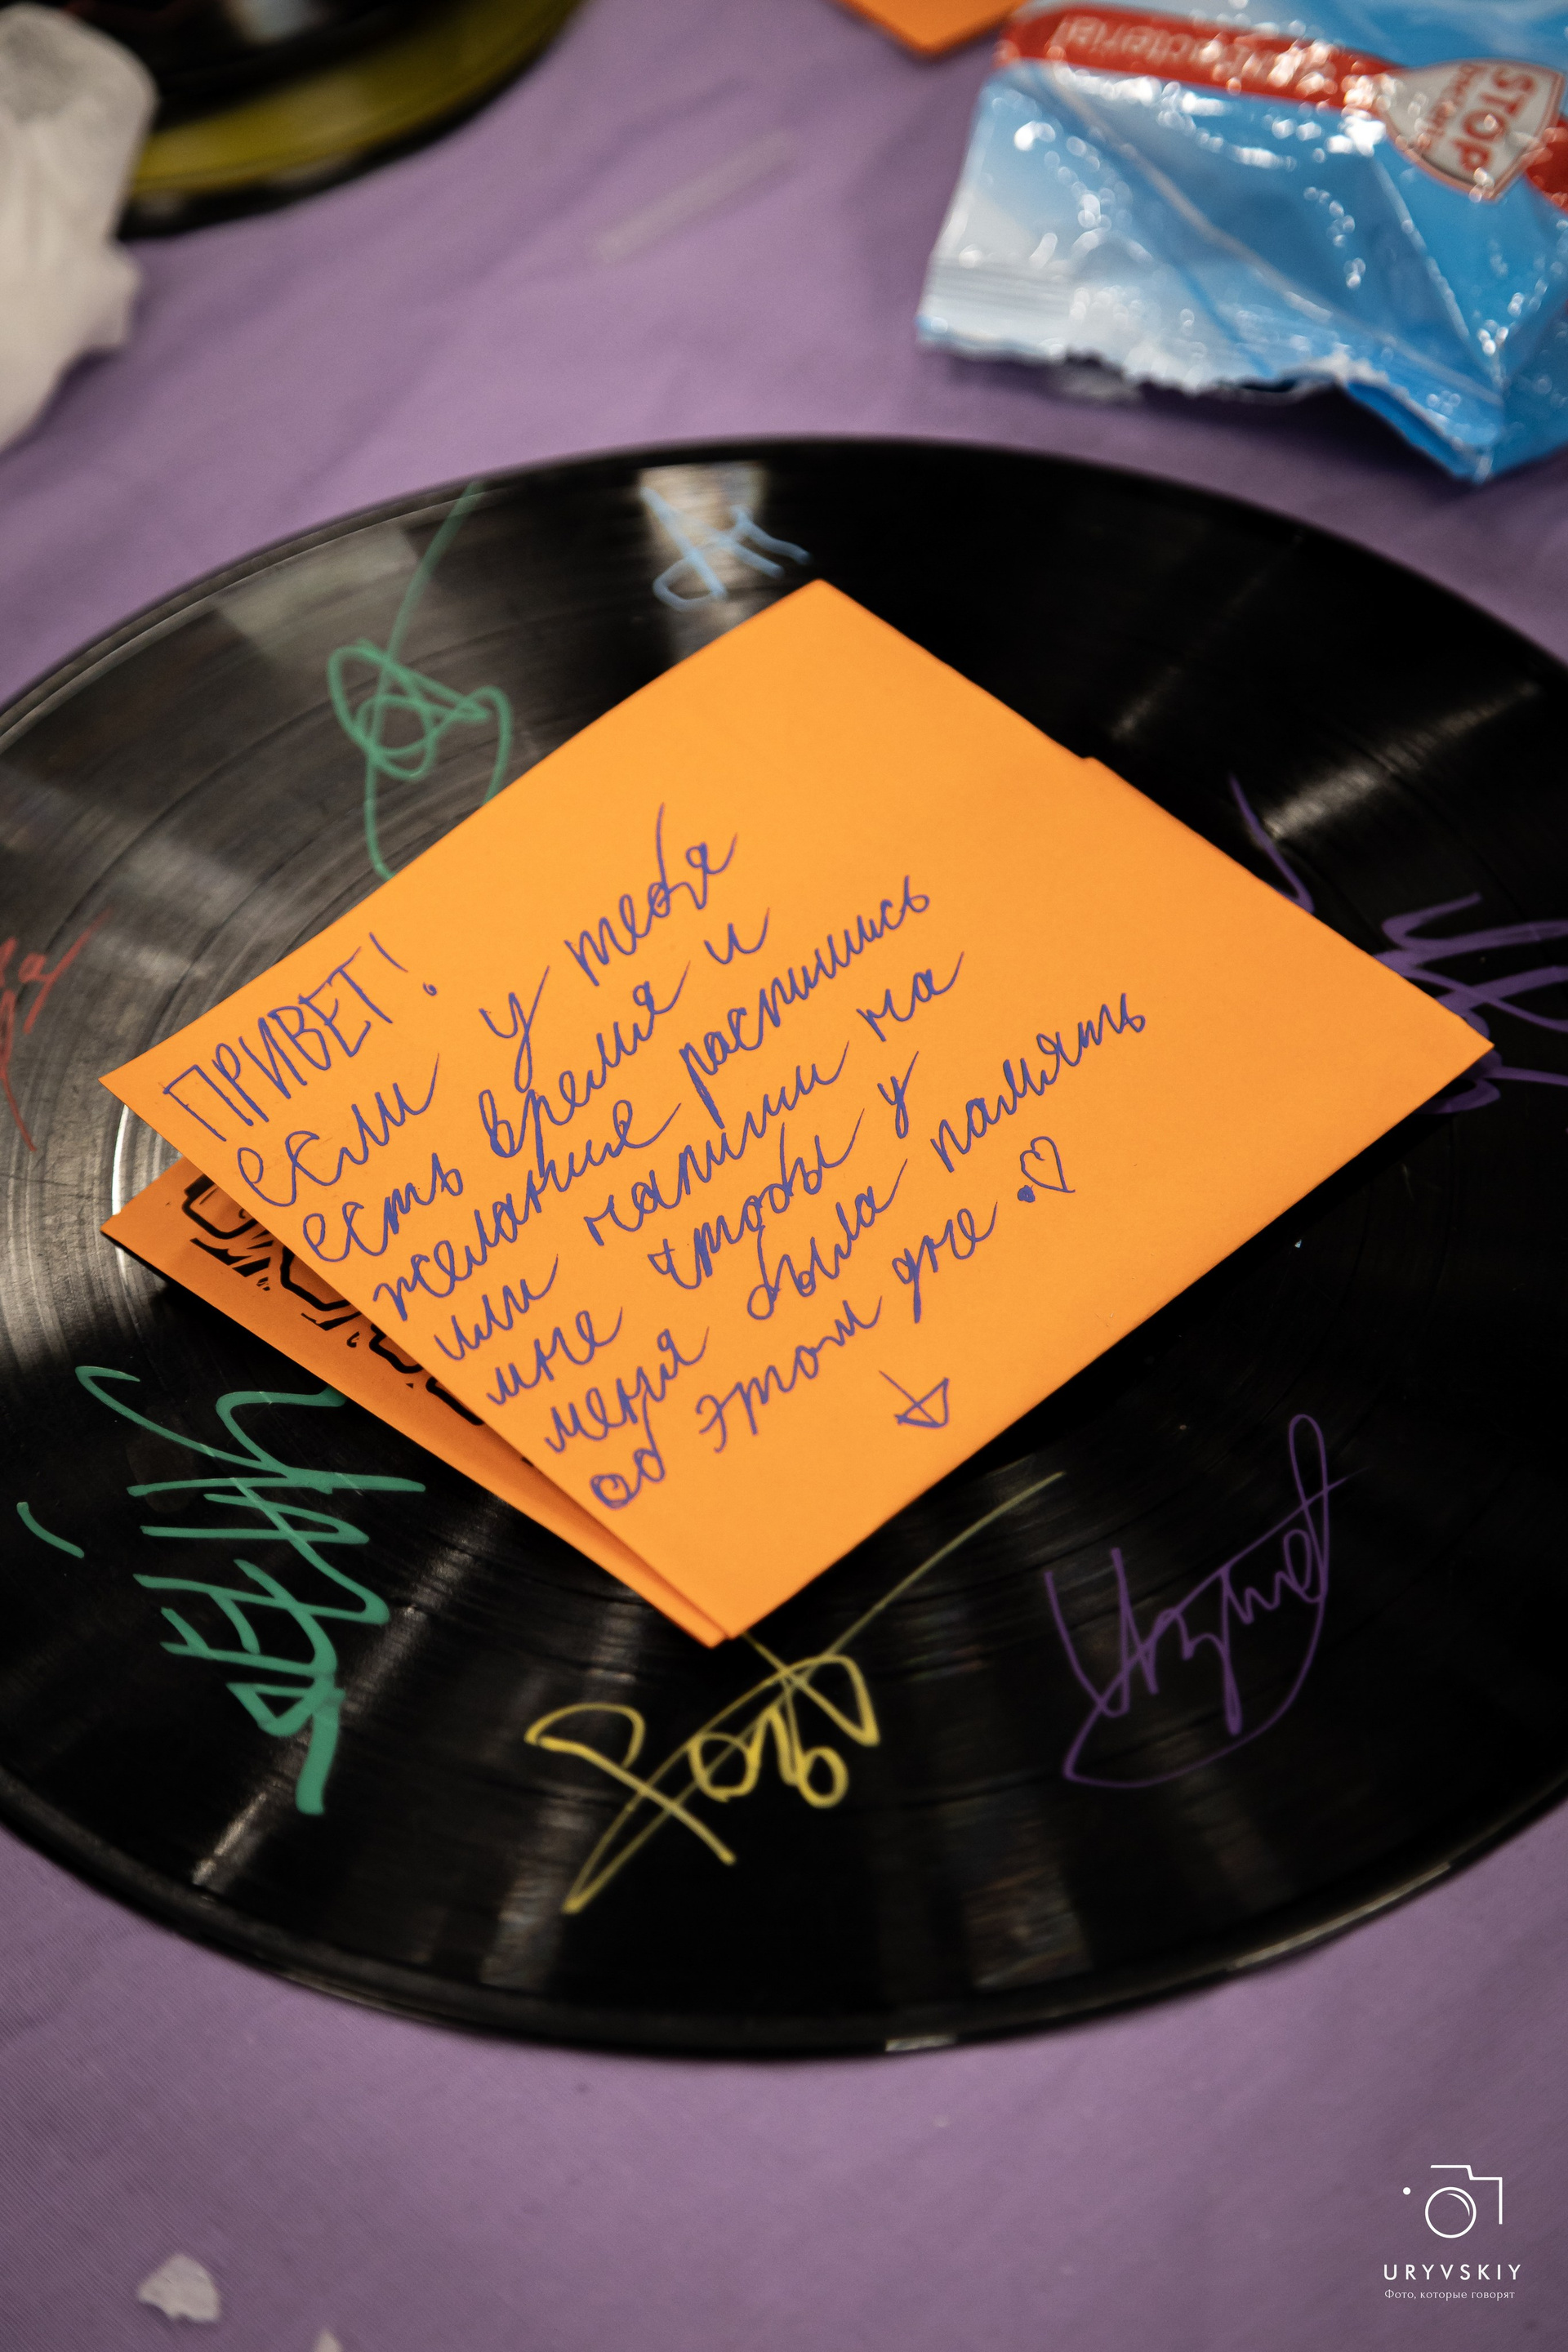 Antibacterial
STOP
ПРИВЕТ!
если у тебя
есть время и
желание распишись
или напиши на
мне чтобы у
меня была память
об этом дне
URYVSKIY
Фото, которые говорят